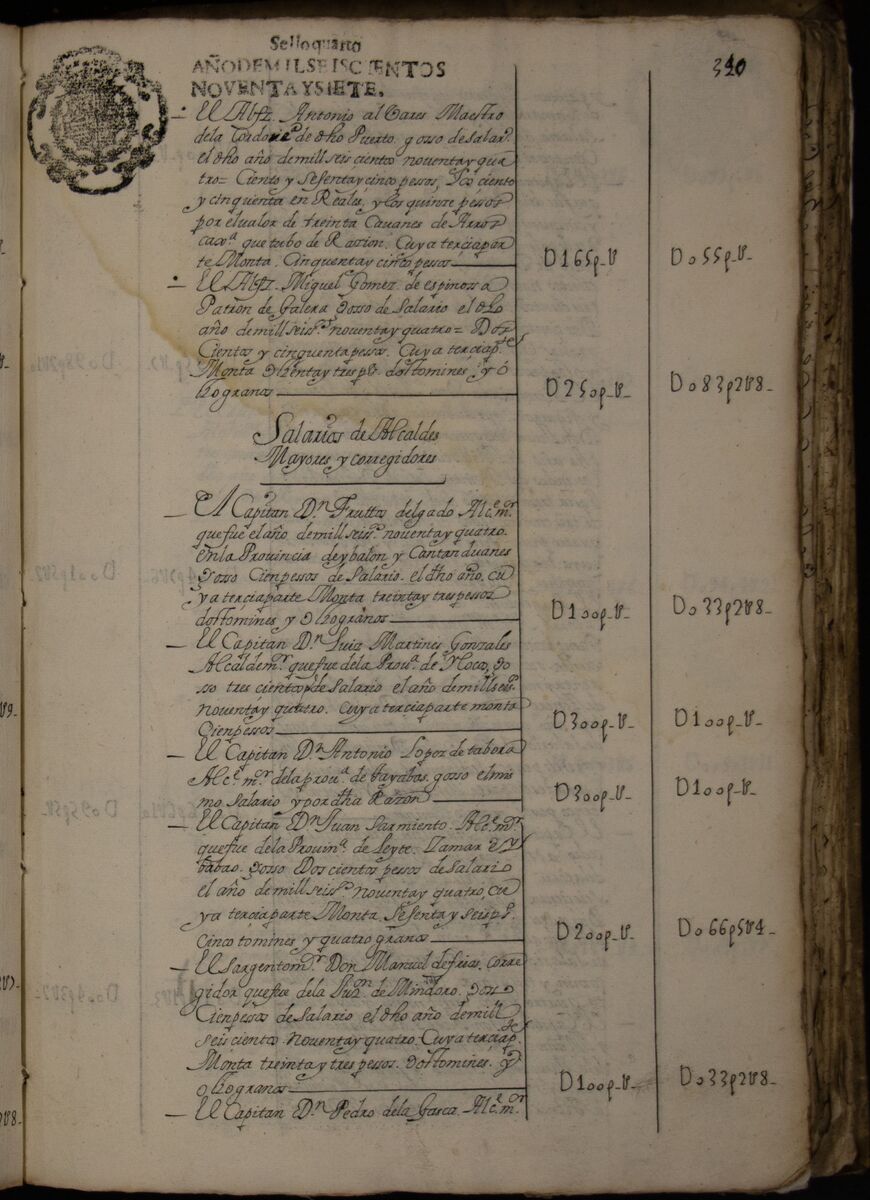 Sello quarto
340
AÑO DE MIL SEISCIENTOS
NOVENTA Y SIETE.
El Alfz. Antonio al Maestro
de la de dho Puerto goso de salarº.
el dho año de mill seis cientos noventa y qua
tro= Ciento y Sesenta y cinco pessos, Los ciento
y cinquenta en Reales, y los quinze pessos
por el valor de treinta Cauanes de Arroz
que tubo de Razion. Cuya tercia par
te Monta. Cinquenta y cinco pessos D165p-U D055p-U-
El Alfz. Miguel Gomez de espinossa
Patron de Galera Gosso de Salario el dho
año de mill seisº. noventa y quatro= Dos
Cientos y cinquenta pessos. Cuya tercia pte
Monta Ochenta y tres pº. dos tomines, y o
cho granos D250p-U- D083p2U8-
Salarios de Alcaldes
Mayores y corregidores
El Capitan Dn Fruttos delgado Alce. mor
que fue el año de mill seisº. noventa y quatro.
en la Prouincia de ybalon y Cantanduanes
Gosso Cien pessos de Salario. el dho año, cu
ya tercia parte Monta treinta y tres pessos
dos tomines y Ocho granos D100p-U- D033p2U8-
El Capitan Dn. Luis Martines Gonzales
Alcalde mor que fue de la Proua. de Ylocos, Go
so tres cientos ps de Salario el año de mill seisº.
noventa y quatro. Cuya tercia parte monta
Cien pessos D300p-U- D100p-U-
El Capitan Dn. Antonio Lopez de tabora
Alce. mor de la proua. de tayabas. gosso el mis
mo salario y por dha Razon D300p-U- D100p-U-
El Capitan Dn. Juan Sarmiento. Alce. mor
que fue de la Prouina. de Leyte. Samar e Y
babao. Gosso Dos cientos pessos de Salario
el año de mill seisº. noventa y quatro, cu
ya tercia parte Monta. Sesenta y seis pº.
Cinco tomines y quatro granos D200p-U- D066p5U4-
El Sargento mor. Don Manuel de frias, corre
gidor que fue de la de Mindoro. Goso
Cien pessos de Salario el dho año de mill
seis cientos noventa y quatro. Cuya tercia pte
Monta treinta y tres pessos. dos tomines. y
ocho granos D100p-U- D033p2U8-
El Capitan Dn. Pedro de la Gasca Alce. mor